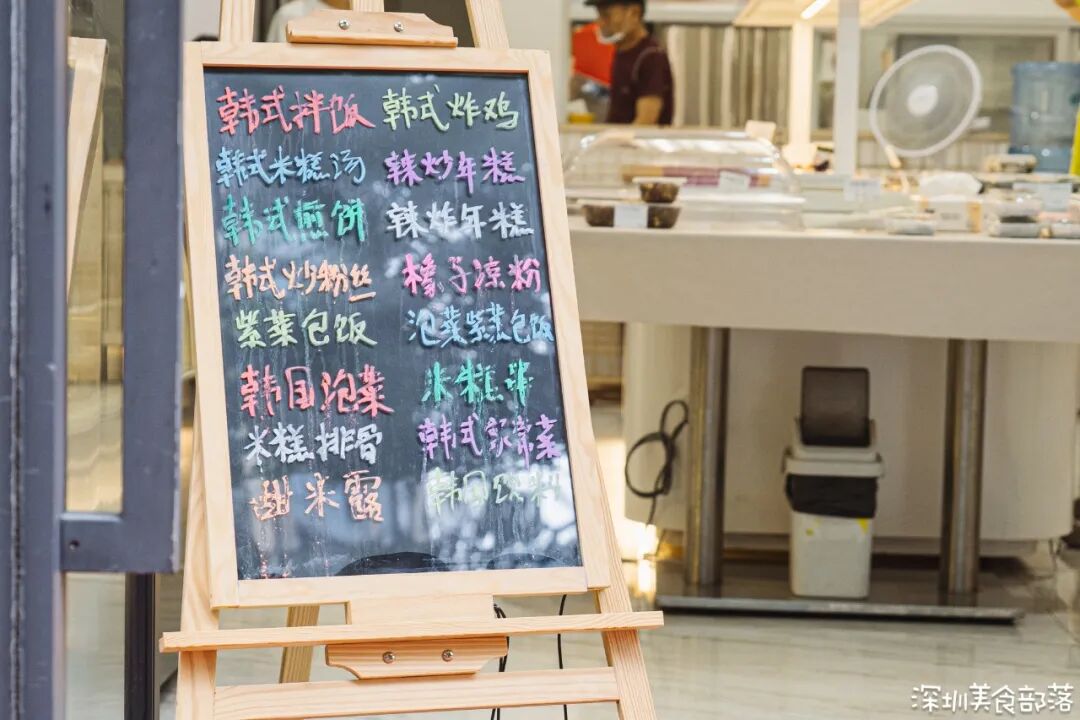 韩式拌饭 韩式炸鸡
韩式米糕汤 辣炒年糕
韩式煎饼 辣炸年糕
韩式炒粉丝 橡子凉粉
紫菜包饭 泡菜紫菜包饭
韩国泡菜 米糕串
米糕排骨 韩式家常菜
甜米露 韩国饮料
深圳美食部落